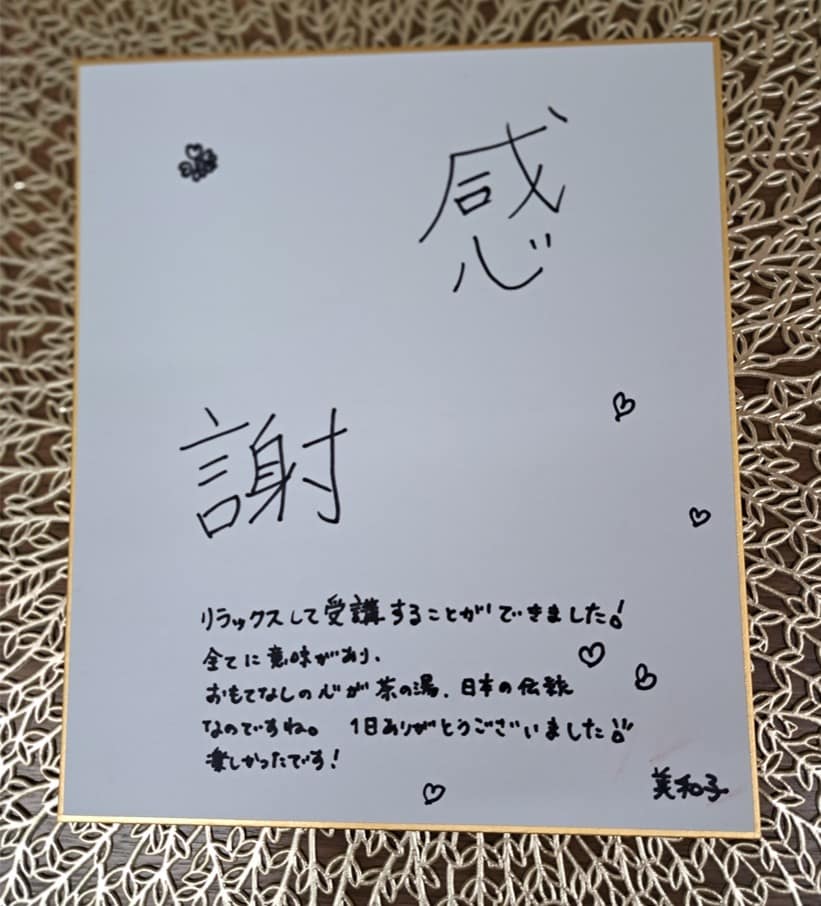 感
謝
リラックスして受講することができました!
全てに意味があり、
おもてなしの心が茶の湯、日本の伝統
なのですね。 1日ありがとうございました!!
楽しかったです!
美和子